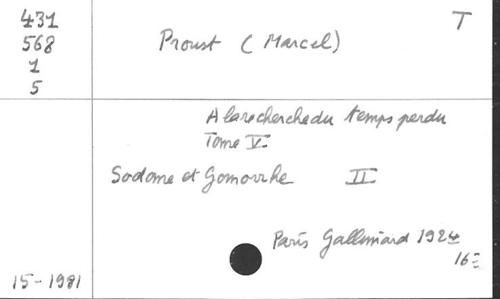 431
568
1
5
T
Proust (Marcel)
A la recherche du temps perdu
Tome V
Sodome et Gomorrhe II
Paris Gallimard 1924
16=
15-1981